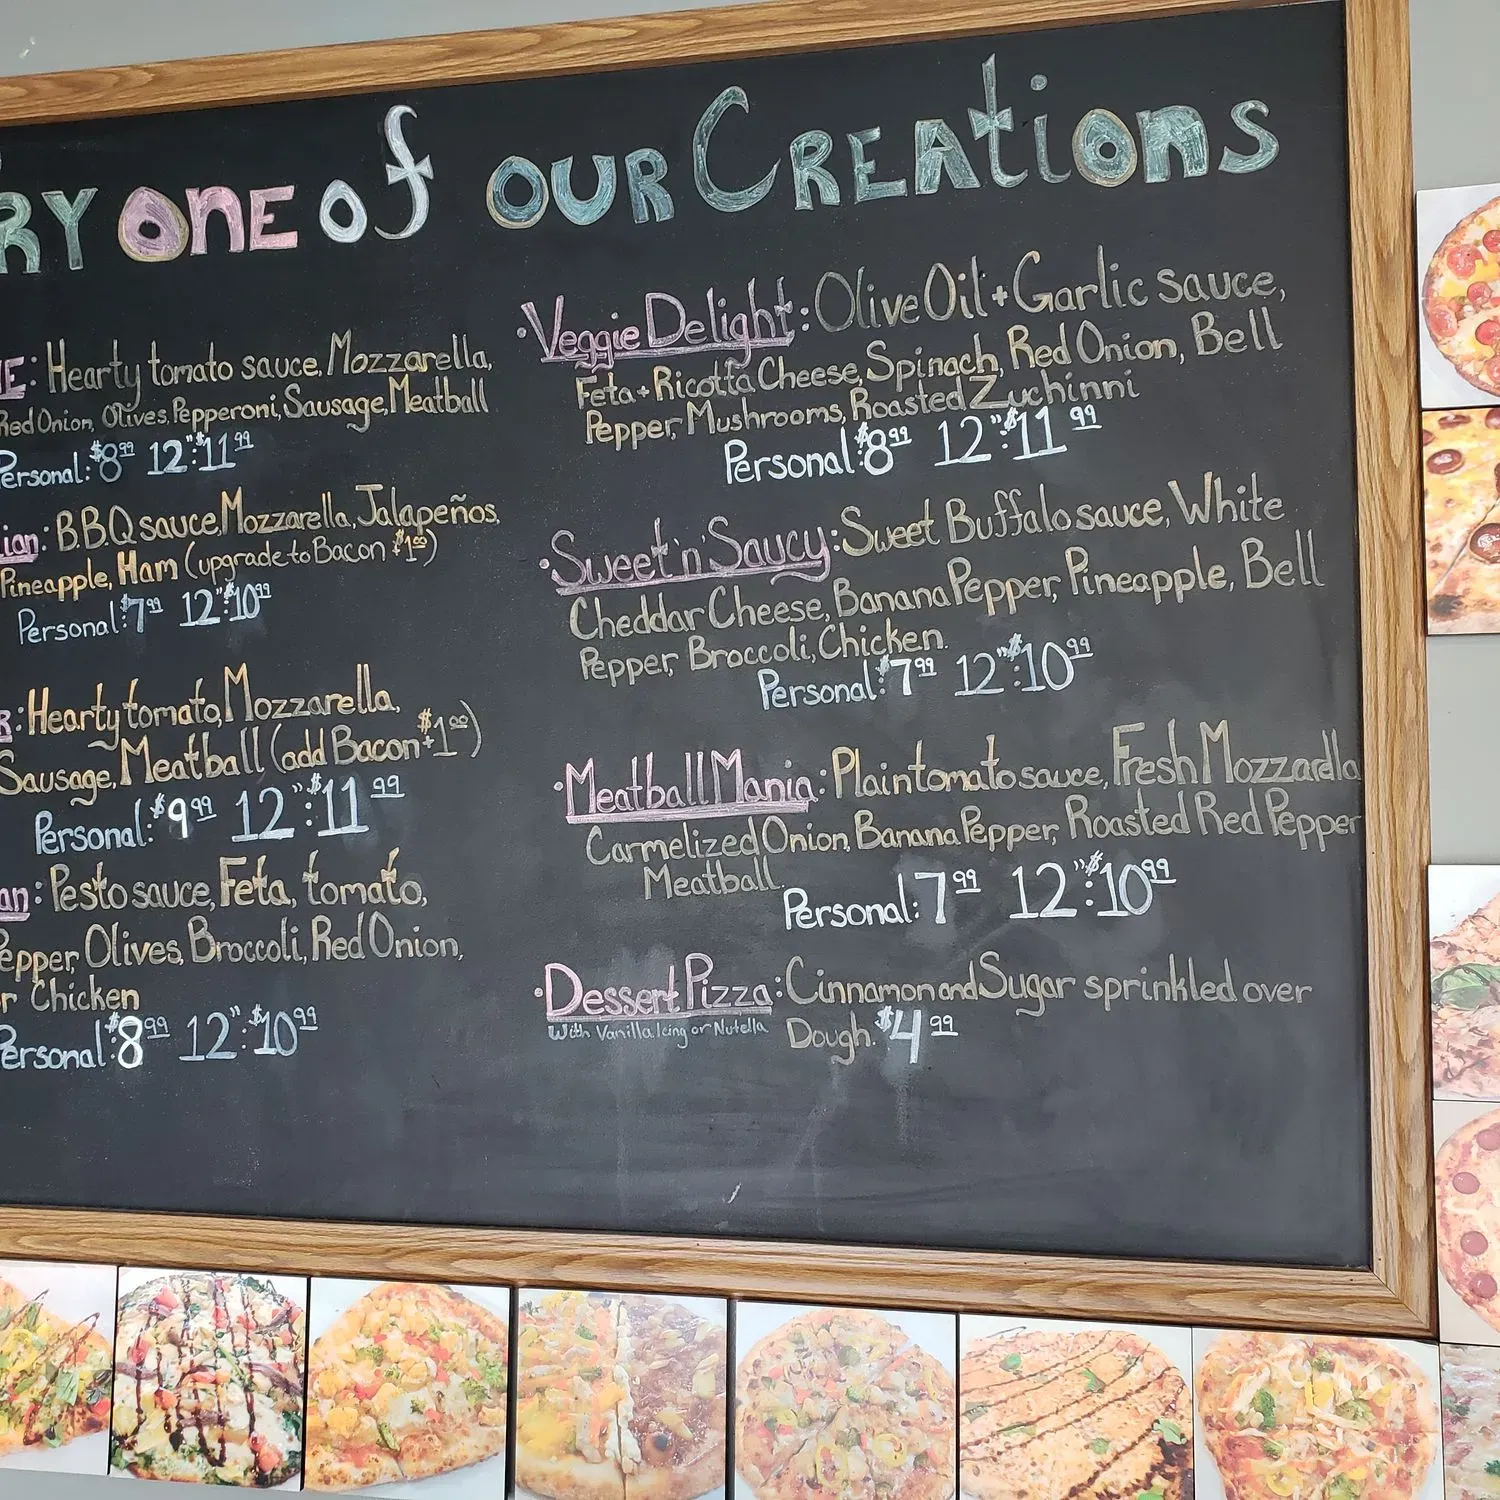 RY ONE of OUR CREAtions
E: Hearty tomato sauce, Mozzarella,
Red Onion, Olives, Pepperoni, Sausage, Meatball
Personal: $8.99 12": $11.99
ian: B.B.Q sauce, Mozzarella, Jalapeños,
Pineapple, Ham (upgrade to Bacon $1.00)
Personal: $7.99 12": $10.99
R: Hearty tomato, Mozzarella,
Sausage, Meatball (add Bacon + $1.00)
Personal: $9.99 12": $11.99
an: Pesto sauce, Feta, tomato,
epper, Olives, Broccoli, Red Onion,
r Chicken
Personal: $8.99 12": $10.99
· Veggie Delight: Olive Oil + Garlic sauce,
Feta + Ricotta Cheese, Spinach, Red Onion, Bell
Pepper, Mushrooms, Roasted Zuchinni
Personal: $8.99 12": $11.99
· Sweet 'n' Saucy: Sweet Buffalo sauce, White
Cheddar Cheese, Banana Pepper, Pineapple, Bell
Pepper, Broccoli, Chicken.
Personal: $7.99 12": $10.99
· Meatball Mania: Plain tomato sauce, Fresh Mozzarella
Carmelized Onion, Banana Pepper, Roasted Red Pepper
Meatball.
Personal: 7.99 12": $10.99
· Dessert Pizza: Cinnamon and Sugar sprinkled over
With Vanilla Icing or Nutella
Dough. $4.99